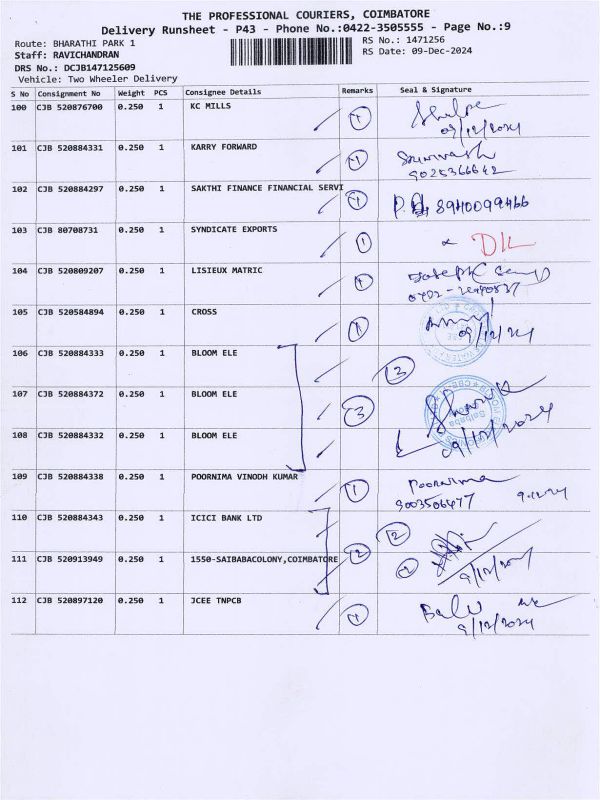 THE PROFESSIONAL COURIERS, COIMBATORE
Delivery Runsheet - P43 - Phone No.:0422-3505555 - Page No.:9
Route: BHARATHI PARK 1
RS No.: 1471256
Staff: RAVICHANDRAN
RS Date: 09-Dec-2024
DRS No.: DCJB147125609
Vehicle: Two Wheeler Delivery
S No Consignment No Weight PCS Consignee Details Remarks Seal & Signature
100 CJB 520876700 0.250 1 KC MILLS 1
09/12/2024
101 CJB 520884331 0.250 1 KARRY FORWARD 1
9025366642
102 CJB 520884297 0.250 1 SAKTHI FINANCE FINANCIAL SERVI 1 8940099466
103 CJB 80708731 0.250 1 SYNDICATE EXPORTS 1
104 CJB 520809207 0.250 1 LISIEUX MATRIC 1
105 CJB 520584894 0.250 1 CROSS 1
09/12/24
106 CJB 520884333 0.250 1 BLOOM ELE 3
107 CJB 520884372 0.250 1 BLOOM ELE 3
108 CJB 520884332 0.250 1 BLOOM ELE
09/12/2024
109 CJB 520884338 0.250 1 POORNIMA VINODH KUMAR 1 Poornima
9003506477 9.12.24
110 CJB 520884343 0.250 1 ICICI BANK LTD 2
111 CJB 520913949 0.250 1 1550-SAIBABACOLONY,COIMBATORE 2 2
9/12/2024
112 CJB 520897120 0.250 1 JCEE TNPCB 1 Balu
9/12/2024